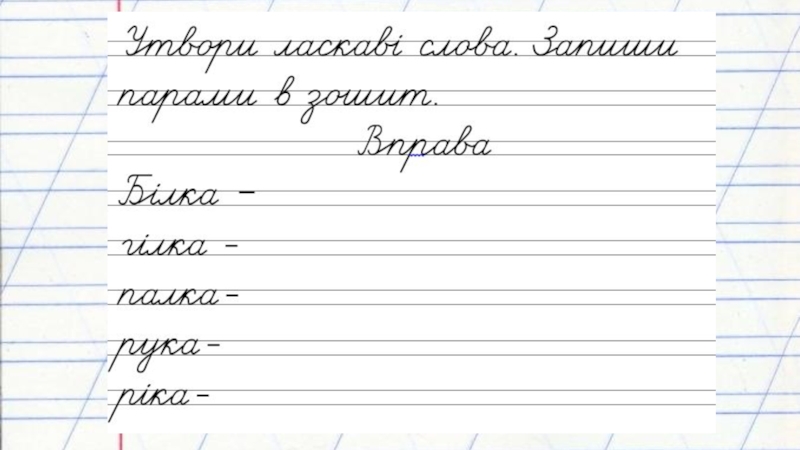 Утвори ласкаві слова. Запиши
парами в зошит.
Вправа
Білка –
гілка –
палка –
рука –
ріка –